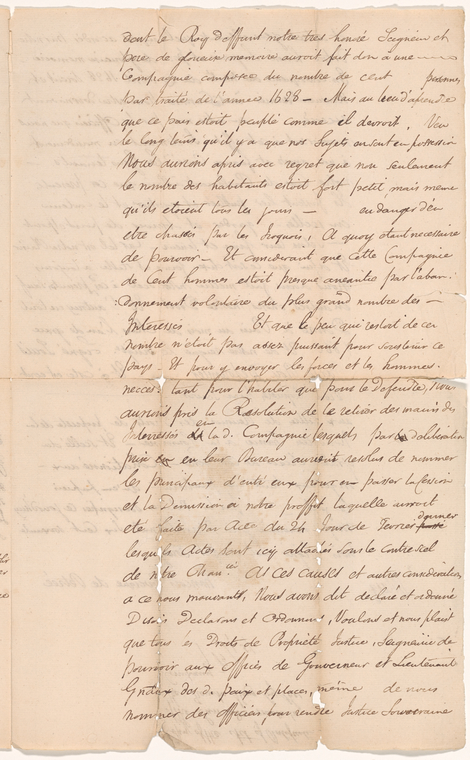 dont le Roy deffunt notre tres honoré Seigneur et
pere de glorieux memoire auroit fait don a une
Compagnie composée du nombre de cent personnes
par traité de l'année 1628 — Mais au lieu d'aprendre
que ce pais estoit peuplé comme il devroit, Veu
le long tems qu'il y a que nos Sujets en sont en possession
Nous aurions apris avec regret que non seulement
le nombre des habitants estoit fort petit mais meme
qu'ils etoient tous les jours — en danger d'en
etre chassés par les Iroquois, A quoy etant necessaire
de pourvoir — Et considerant que cette Compagnie
de Cent hommes estoit presque aneantie par l'aban-
:donnement volontaire du plus grand nombre des —
Interessés Et que le peu qui restoit de ce
nombre n'etoit pas assez puissant pour soustenir ce
pays Et pour y envoyer les forces et les hommes
necces: tant pour l'habiter que pour le defendre, Nous
aurions pris la Resolution de le retirer des mains des
Interressés en la d. Compagnie lesquels par deliberation
prise en leur Bureau auroient resolus de nommer
les principaux d'entr eux pour en passer la Cession
et la Demission a notre proffit laquelle auroit
eté faite par Acte du 24 Jour de Fevrier dernier
lesquels Actes sont icy attachés sous le contre scel
de notre Chan.cie A Ces causes et autres considerations
a ce nous mouvants, Nous avons dit declaré et ordonné
Disons Declarons et Ordonnons, Voulons et nous plait
que tous les Droits de Proprieté Justice, Seigneurie de
pourvoir aux offices de Gouverneur et Lieutenant
Gnaux des d. paix et places, même de nous
nommer des officiers pour rendre Justice Souveraine